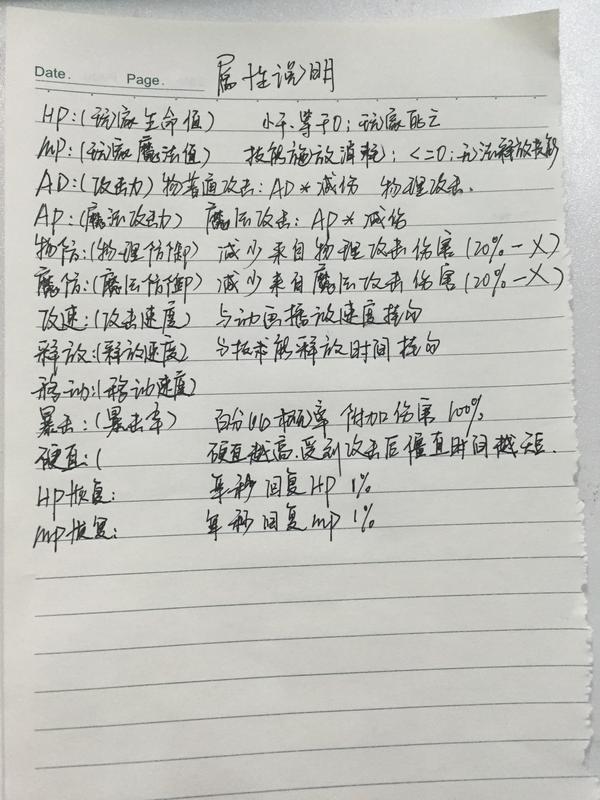 Date. Page. 属性说明
HP:(玩家生命值) 小于、等于0;玩家死亡
MP:(玩家魔法值) 技能施放消耗;<=0;无法释放技能
AD:(攻击力) 物普通攻击:AD*减伤 物理攻击.
AP:(魔法攻击力) 魔法攻击:AP*减伤
物防:(物理防御) 减少来自物理攻击伤害(20%-X)
魔防:(魔法防御) 减少来自魔法攻击伤害(20%-X)
攻速:(攻击速度) 与动画播放速度挂勾
释放:(释放速度) 与技能释放时间挂勾
移动:(移动速度)
暴击:(暴击率) 百分比概率 附加伤害100%
硬直:( 硬直越高.受到攻击后僵直时间越短.
HP恢复: 每秒回复HP 1%
MP恢复: 每秒回复MP 1%